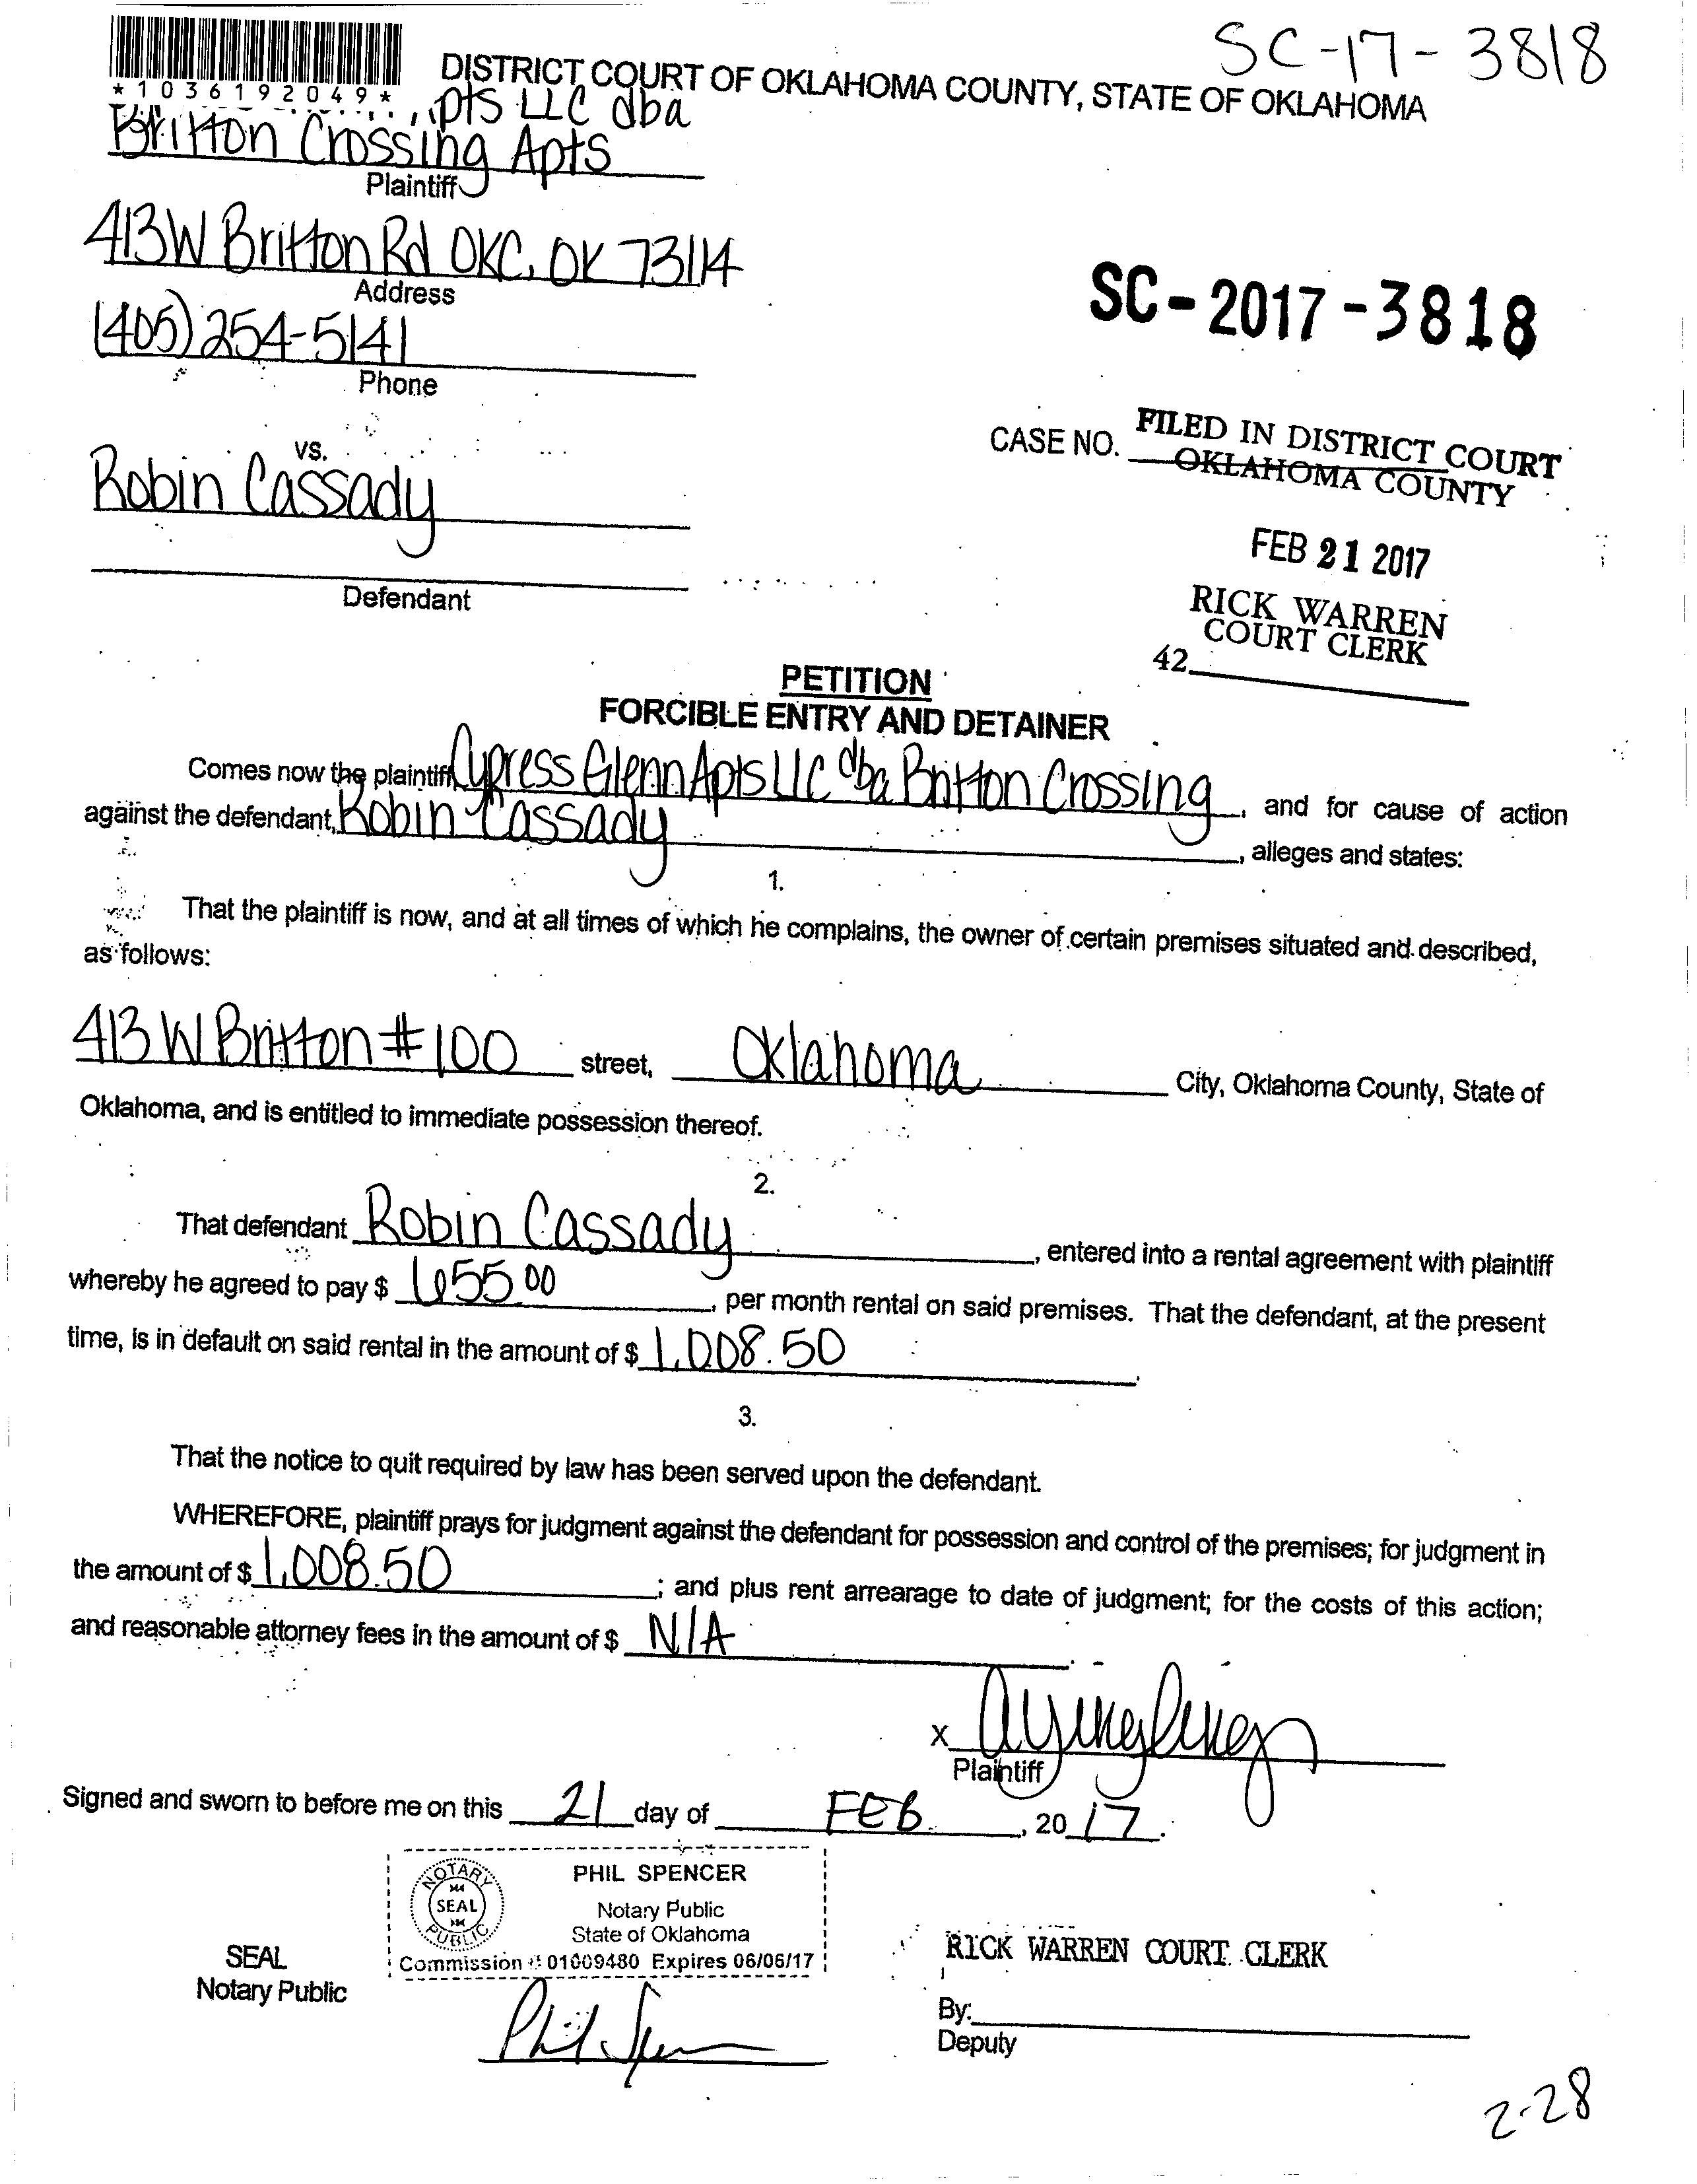 SC-17-3818
*1036192049*
DISTRICT COURT OF OKLAHOMA COUNTY, STATE OF OKLAHOMA
pts LLC dba
Britton Crossing Apts
Plaintiff
413 W Britton Rd OKC, OK 73114
Address
(405) 254-5141
Phone
SC-2017-3818
vs.
Robin Cassady
Defendant
CASE NO.
FILED IN DISTRICT COURT
OKLAHOMA COUNTY
FEB 21 2017
RICK WARREN
COURT CLERK
42
PETITION
FORCIBLE ENTRY AND DETAINER
Comes now the plaintiff Cypress Glenn Apts LLC dba Britton Crossing, and for cause of action
against the defendant, Robin Cassady, alleges and states:
1.
That the plaintiff is now, and at all times of which he complains, the owner of certain premises situated and described,
as follows:
413 W Britton #100 street, Oklahoma City, Oklahoma County, State of
Oklahoma, and is entitled to immediate possession thereof.
2.
That defendant Robin Cassady, entered into a rental agreement with plaintiff
whereby he agreed to pay $ 655.00, per month rental on said premises. That the defendant, at the present
time, is in default on said rental in the amount of $ 1,008.50.
3.
That the notice to quit required by law has been served upon the defendant.
WHEREFORE, plaintiff prays for judgment against the defendant for possession and control of the premises; for judgment in
the amount of $ 1,008.50; and plus rent arrearage to date of judgment; for the costs of this action;
and reasonable attorney fees in the amount of $ N/A.
x ayingling
Plaintiff
Signed and sworn to before me on this 21 day of FEB, 2017.
NOTARY PUBLIC
SEAL
PHIL SPENCER
Notary Public
State of Oklahoma
Commission # 01009480 Expires 06/06/17
SEAL
Notary Public
Phil Spencer
RICK WARREN COURT CLERK
By:
Deputy
2-28